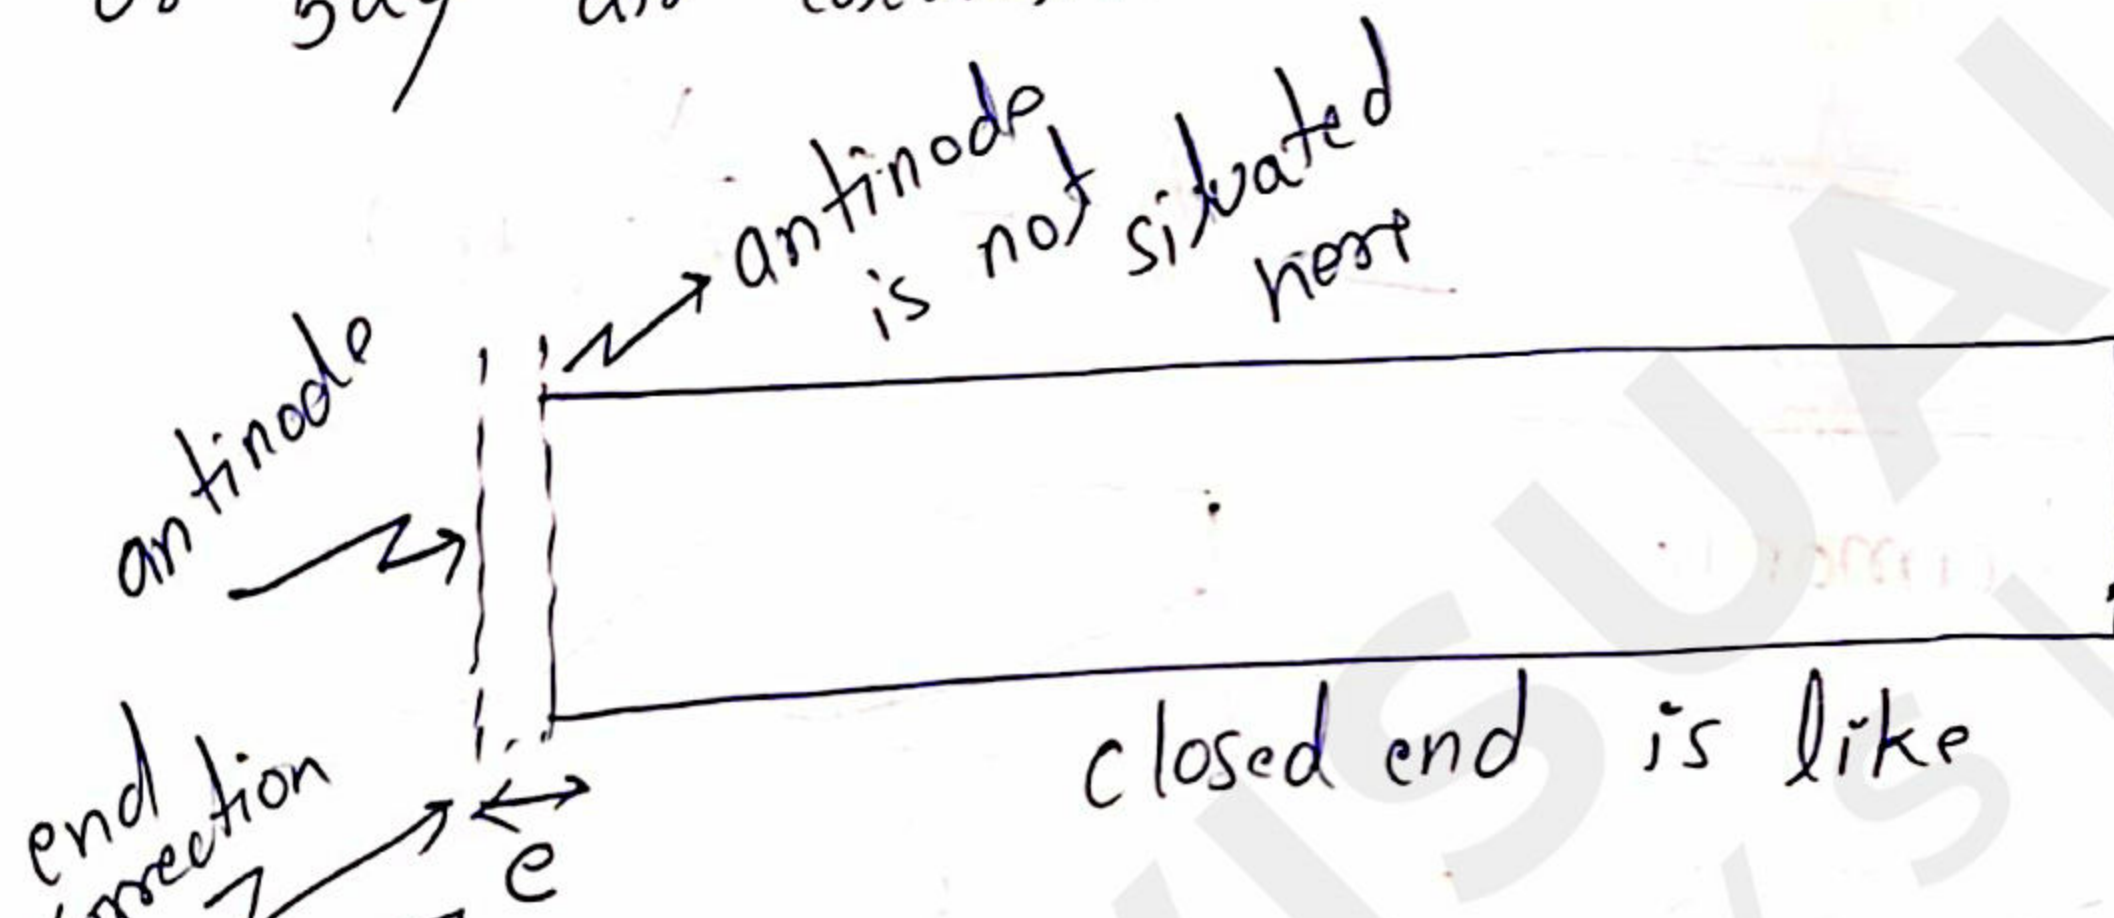 say
antinode
is not situated
here
antinode
end
correction
e
closed end is like